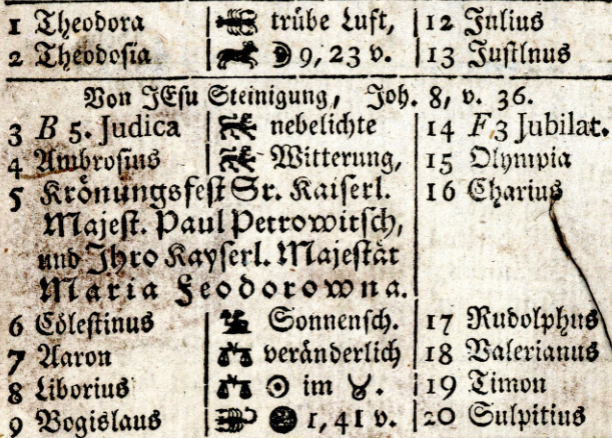 1 Theodora trübe Luft, 12 Julius
2 Theodosia 9, 23 v. 13 Justlnus
Von JEsu Steinigung, Joh. 8, v. 36.
3 B 5. Judica nebelichte 14 F 3 Jubilat.
4 Ambrosius Witterung, 15 Olympia
5 Krönungsfest Sr. Kaiserl. 16 Charius
Majest. Paul Petrowitsch,
und Ihro Kayserl. Majestät
Maria Feodorowna.
6 Cölestinus Sonnensch. 17 Rudolphus
7 Aaron ♎ veränderlich 18 Valerianus
8 Liborius ♎ ☉ im ♉. 19 Timon
9 Bogislaus 1, 41 v. 20 Sulpitius